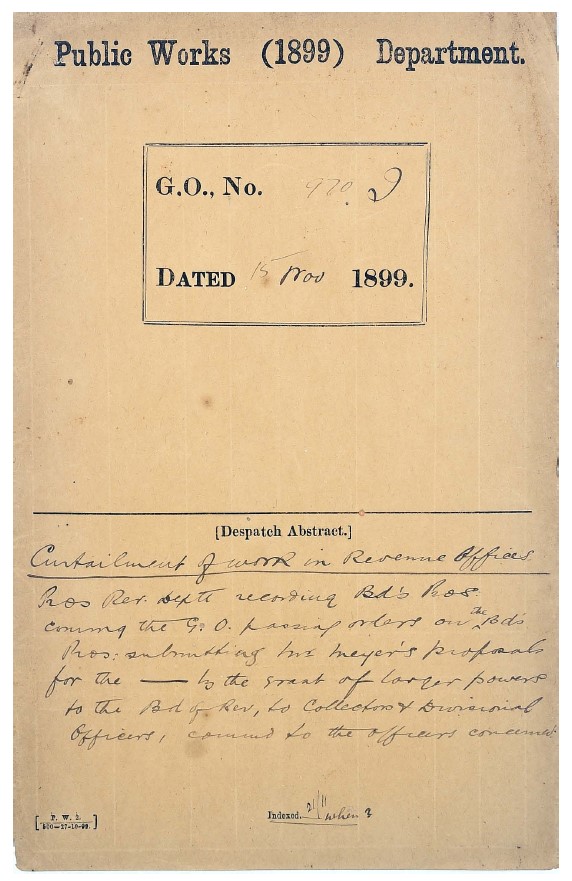 Public Works (1899) Department.
G.O., No. 970. I
DATED 15 Nov 1899.
[Despatch Abstract.]
Curtailment of work in Revenue Offices.
Pros Rev. Deptt recording Bd's Pros:
comng the G.O. passing orders on the Bd's
Pros: submitting Mr Meyer's proposals
for the — by the grant of larger powers
to the Bd of Rev, to Collectors & Divisional
Officers, commd to the officers concerned
[P. W. 2.
500—27-10-99.]
Indexed. when ?